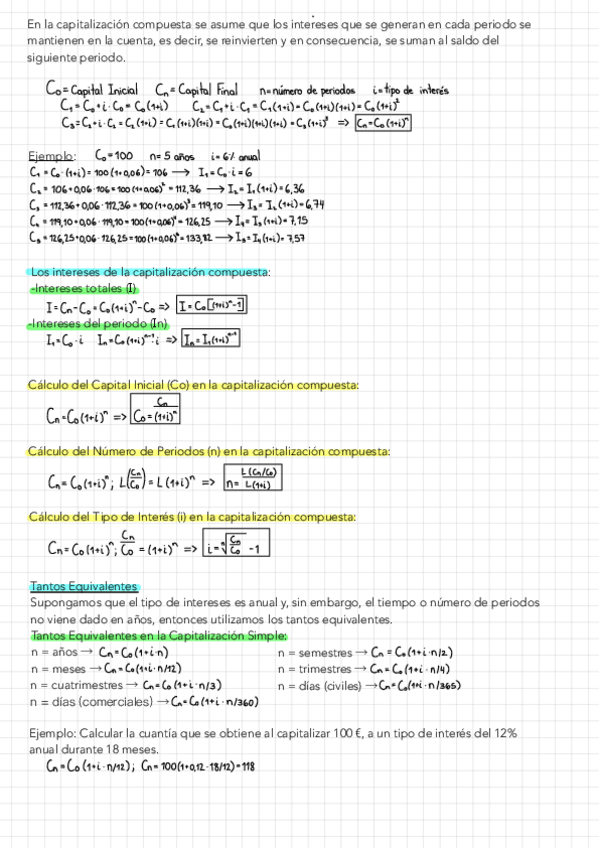 En la capitalización compuesta se asume que los intereses que se generan en cada periodo se
mantienen en la cuenta, es decir, se reinvierten y en consecuencia, se suman al saldo del
siguiente periodo.
C₀ = Capital Inicial Cₙ = Capital Final n = número de periodos i = tipo de interés
C₁ = C₀ + i · C₀ = C₀ (1+i) C₂ = C₁ + i · C₁ = C₁ (1+i) = C₀ (1+i)(1+i) = C₀ (1+i)²
C₃ = C₂ + i · C₂ = C₂ (1+i) = C₁ (1+i)(1+i) = C₀ (1+i)(1+i)(1+i) = C₀ (1+i)³ => Cₙ = C₀ (1+i)ⁿ
Ejemplo: C₀ = 100 n = 5 años i = 6% anual
C₁ = C₀ · (1+i) = 100 (1+0,06) = 106 → I₁ = C₀ · i = 6
C₂ = 106 + 0,06 · 106 = 100 (1+0,06)² = 112,36 → I₂ = I₁ (1+i) = 6,36
C₃ = 112,36 + 0,06 · 112,36 = 100 (1+0,06)³ = 119,10 → I₃ = I₂ (1+i) = 6,74
C₄ = 119,10 + 0,06 · 119,10 = 100 (1+0,06)⁴ = 126,25 → I₄ = I₃ (1+i) = 7,15
C₅ = 126,25 + 0,06 · 126,25 = 100 (1+0,06)⁵ = 133,82 → I₅ = I₄ (1+i) = 7,57
Los intereses de la capitalización compuesta:
-Intereses totales (I)
I = Cₙ - C₀ = C₀ (1+i)ⁿ - C₀ => I = C₀ [(1+i)ⁿ - 1]
-Intereses del periodo (In)
I₁ = C₀ · i Iₙ = C₀ (1+i)ⁿ⁻¹ · i => Iₙ = I₁ (1+i)ⁿ⁻¹
Cálculo del Capital Inicial (Co) en la capitalización compuesta:
Cₙ = C₀ (1+i)ⁿ => C₀ = Cₙ / (1+i)ⁿ
Cálculo del Número de Periodos (n) en la capitalización compuesta:
Cₙ = C₀ (1+i)ⁿ ; L (Cₙ/C₀) = L (1+i)ⁿ => n = L (Cₙ/C₀) / L (1+i)
Cálculo del Tipo de Interés (i) en la capitalización compuesta:
Cₙ = C₀ (1+i)ⁿ ; Cₙ/C₀ = (1+i)ⁿ => i = ⁿ√(Cₙ/C₀) - 1
Tantos Equivalentes
Supongamos que el tipo de intereses es anual y, sin embargo, el tiempo o número de periodos
no viene dado en años, entonces utilizamos los tantos equivalentes.
Tantos Equivalentes en la Capitalización Simple:
n = años → Cₙ = C₀ (1+i·n) n = semestres → Cₙ = C₀ (1+i · n/2)
n = meses → Cₙ = C₀ (1+i · n/12) n = trimestres → Cₙ = C₀ (1+i · n/4)
n = cuatrimestres → Cₙ = C₀ (1+i · n/3) n = días (civiles) → Cₙ = C₀ (1+i · n/365)
n = días (comerciales) → Cₙ = C₀ (1+i · n/360)
Ejemplo: Calcular la cuantía que se obtiene al capitalizar 100 €, a un tipo de interés del 12%
anual durante 18 meses.
Cₙ = C₀ (1+i · n/12) ; Cₙ = 100 (1+0,12 · 18/12) = 118